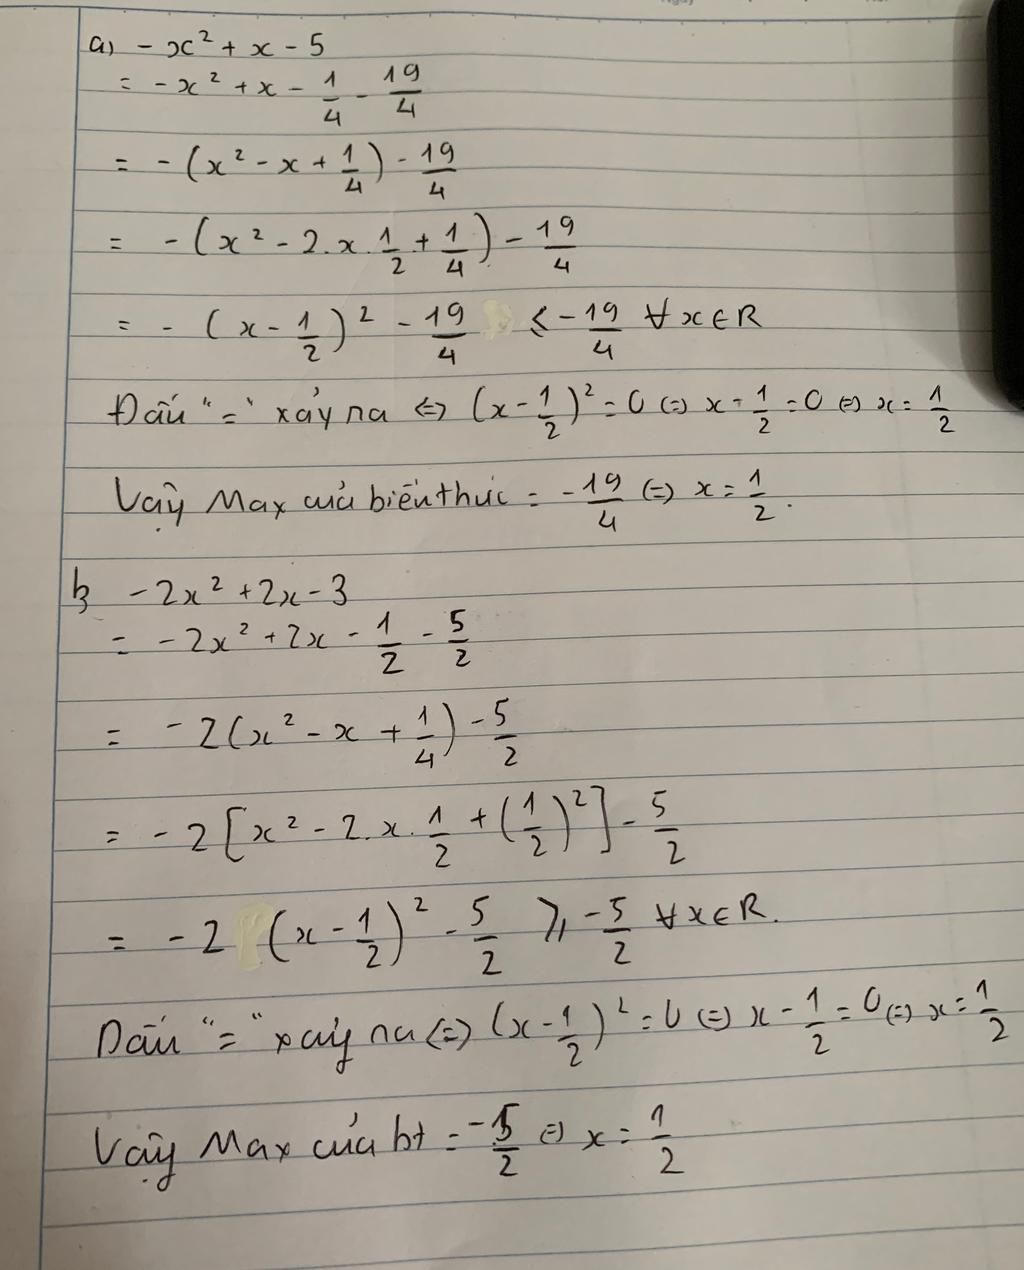 a) - x² + x - 5
= - x² + x - 1/4 - 19/4
= - (x² - x + 1/4) - 19/4
= - (x² - 2.x.1/2 + 1/4) - 19/4
= - (x - 1/2)² - 19/4 ≤ - 19/4 ∀ x ∈ R
Dấu "=" xảy ra <=> (x - 1/2)² = 0 (=) x - 1/2 = 0 (=) x = 1/2
Vậy Max của biểu thức = - 19/4 (=) x = 1/2.
b - 2x² + 2x - 3
= - 2x² + 2x - 1/2 - 5/2
= - 2(x² - x + 1/4) - 5/2
= - 2[x² - 2.x.1/2 + (1/2)²] - 5/2
= - 2 (x - 1/2)² - 5/2 ≥ - 5/2 ∀ x ∈ R.
Dấu "=" xảy ra <=> (x - 1/2)² = 0 (=) x - 1/2 = 0 (=) x = 1/2
Vậy Max của bt = - 5/2 (=) x = 1/2